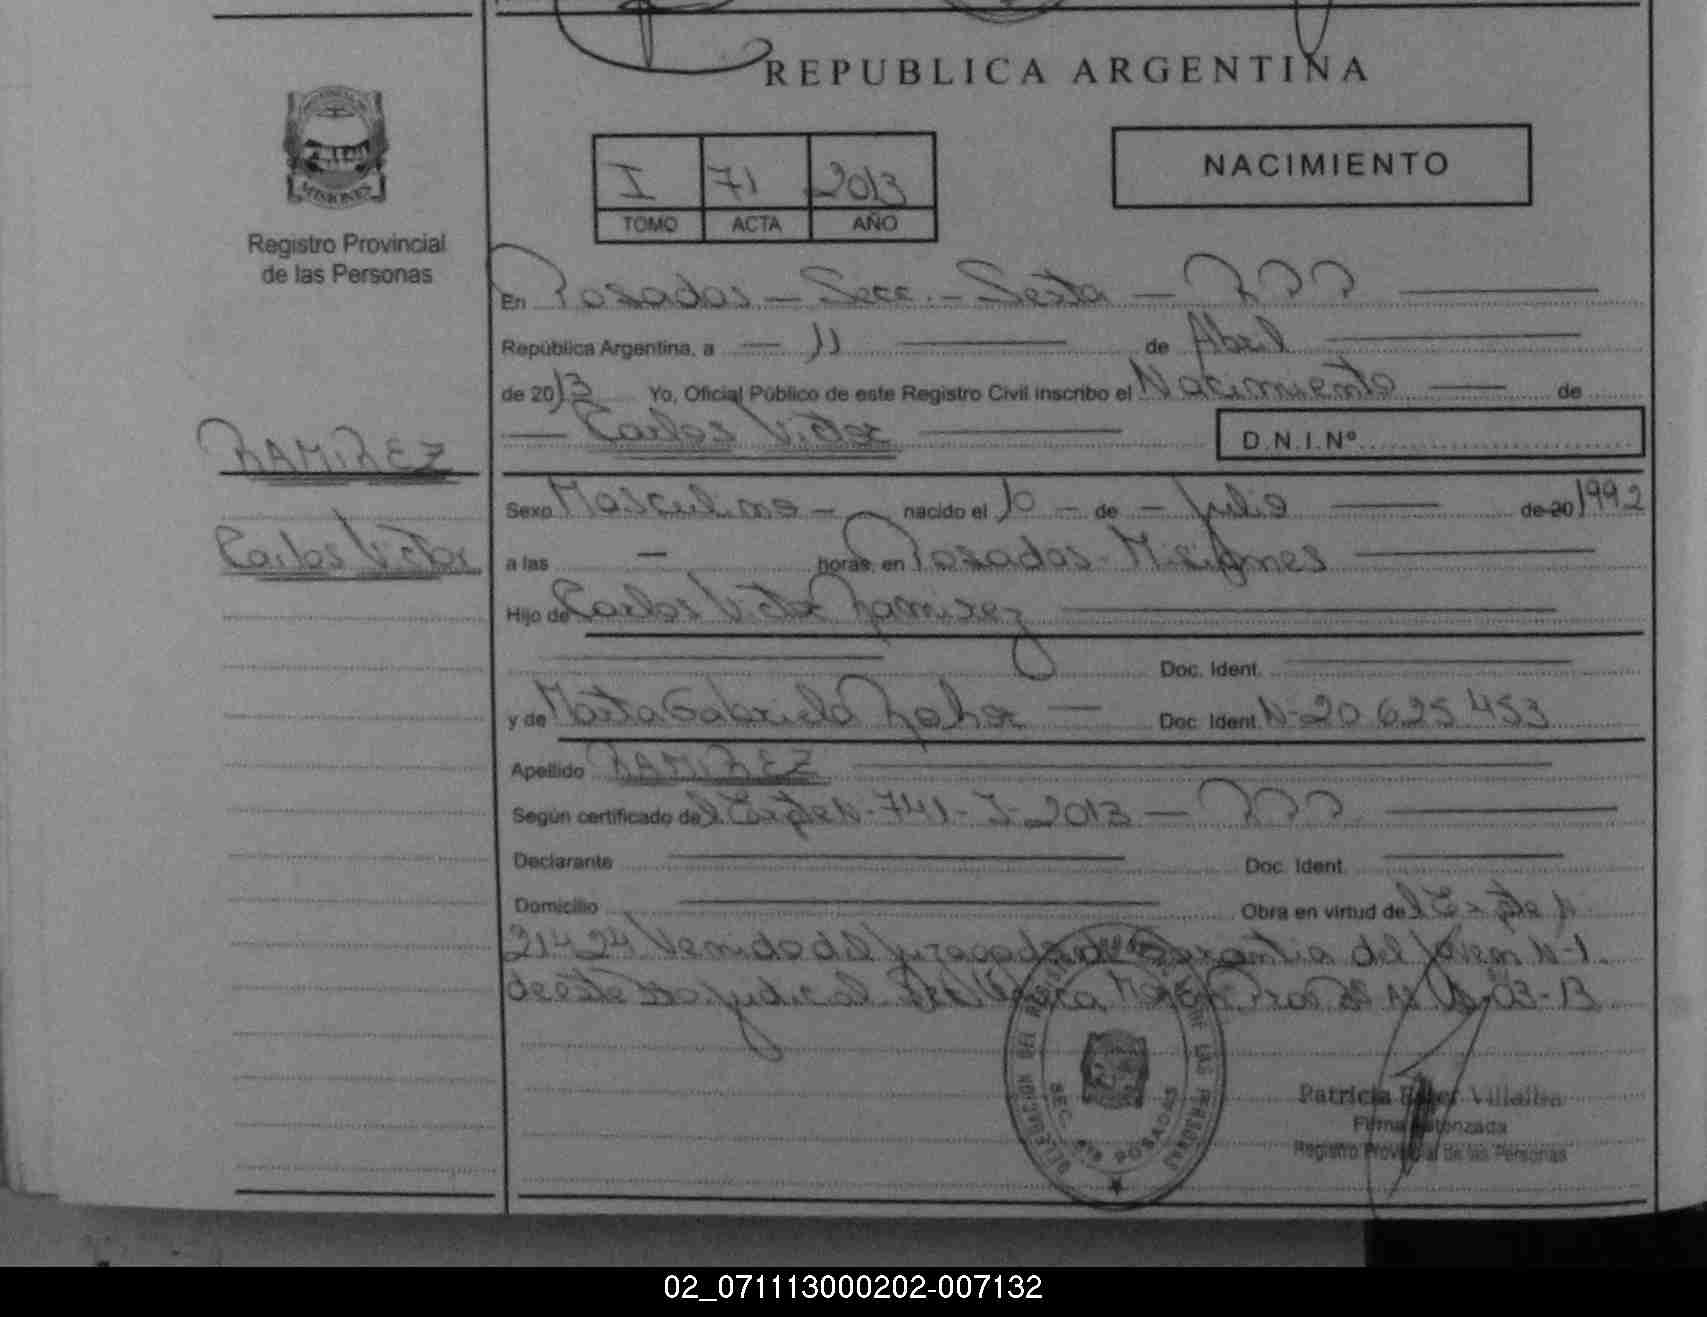 REPUBLICA ARGENTINA
I 71 2013
TOMO ACTA AÑO
NACIMIENTO
MISIONES
Registro Provincial
de las Personas
En Posadas - Secc. - Sexta -
República Argentina, a - 11 de Abril
de 2013 Yo, Oficial Público de este Registro Civil inscribo el Nacimiento de
- Carlos Victor
D.N.I.Nº
RAMIREZ
Carlos Victor
Sexo Masculino - nacido el 10 - de - Julio de 20 1992
a las - horas, en Posadas - Misiones
Hijo de Carlos Victor Ramirez
Doc. Ident.
y de Marta Gabriela Doc. Ident. N-20 625 453
Apellido RAMIREZ
Según certificado del Expte N-741-I-2013 -
Declarante Doc. Ident.
Domicilio Obra en virtud del Expte N
21424 Venido del Juzgado de Garantia del Joven N-1
de este Judicial 03-13
DELEGACION DEL REGISTRO DE LAS PERSONAS
SEC. 6ta POSADAS
Patricia Villalba
Firma Autorizada
Registro Provincial de las Personas
02_071113000202-007132